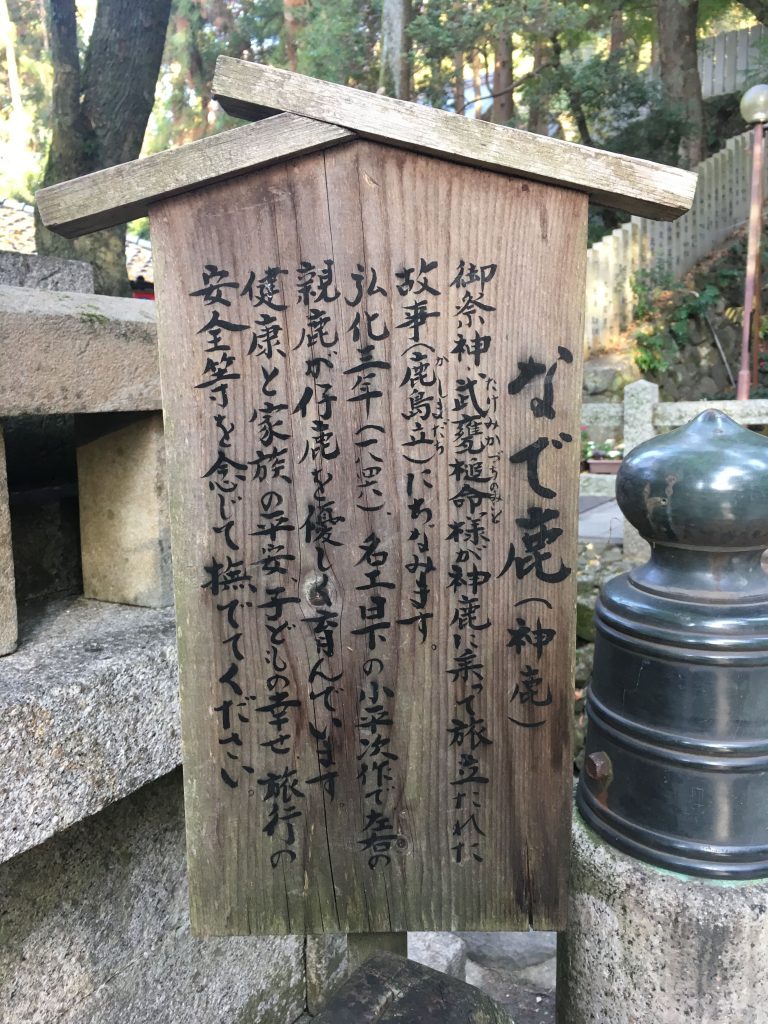 なで鹿(神鹿)
御祭神、武甕槌命様が神鹿に乗って旅立たれた
たけみかづちのみこと
故事(鹿島立)にちなみます。
かしまだち
弘化三年(一八四六)、名工日下の小平次作で左右の
親鹿が仔鹿を優しく育んでいます。
健康と家族の平安、子どもの幸せ、旅行の
安全等を念じて撫でてください。